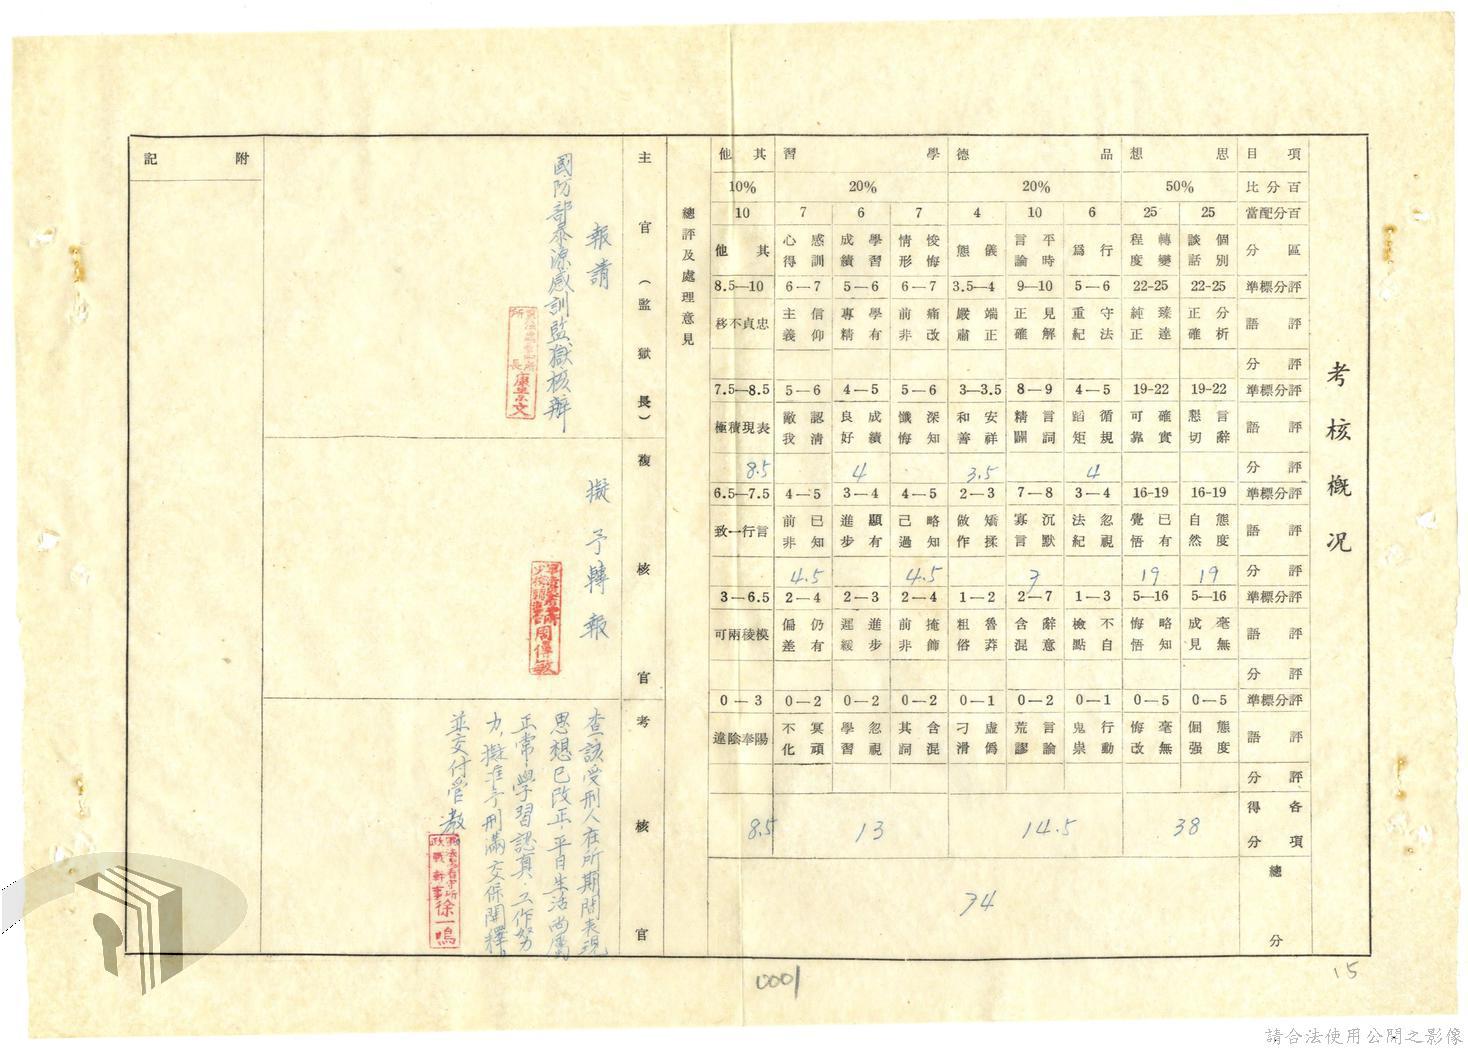 考核概况
項目 思想 品德 學習 其他
百分比 50% 20% 20% 10%
百分配當 25 25 6 10 4 7 6 7 10
區分 個別談話 轉變程度 行為 平時言論 儀態 悛悔情形 學習成績 感訓心得 其他
評分標準 22-25 22-25 5—6 9—10 3.5—4 6—7 5—6 6—7 8.5—10
評語 分析正確 臻達純正 守法重紀 見解正確 端正嚴肅 痛改前非 學有專精 信仰主義 忠貞不移
評分
評分標準 19-22 19-22 4—5 8—9 3—3.5 5—6 4—5 5—6 7.5—8.5
評語 言辭懇切 確實可靠 循規蹈矩 言詞精闢 安祥和善 深知懺悔 成績良好 認清敵我 表現積極
評分 4 3.5 4 8.5
評分標準 16-19 16-19 3—4 7—8 2—3 4—5 3—4 4—5 6.5—7.5
評語 態度自然 已有覺悟 忽視法紀 沉默寡言 矯揉做作 略知己過 顯有進步 已知前非 言行一致
評分 19 19 7 4.5 4.5
評分標準 5—16 5—16 1—3 2—7 1—2 2—4 2—3 2—4 3—6.5
評語 毫無成見 略知悔悟 不自檢點 辭意含混 魯莽粗俗 掩飾前非 進步遲緩 仍有偏差 模稜兩可
評分
評分標準 0—5 0—5 0—1 0—2 0—1 0—2 0—2 0—2 0—3
評語 態度倔強 毫無悔改 行動鬼祟 言論荒謬 虛偽刁滑 含混其詞 忽視學習 冥頑不化 陽奉陰違
評分
各項得分 38 14.5 13 8.5
總分 74
總評及處理意見
考核官
查該受刑人在所期間表現
思想已改正,平日生活尚屬
正常,學習認真,工作努
力,擬准予刑滿交保開釋,
並交付管教
政戰幹事徐一鳴
複核官
擬予轉報
周傳敏
主官(監獄長)
報請
國防部泰源感訓監獄核辦
附記
0001
15
請合法使用公開之影像